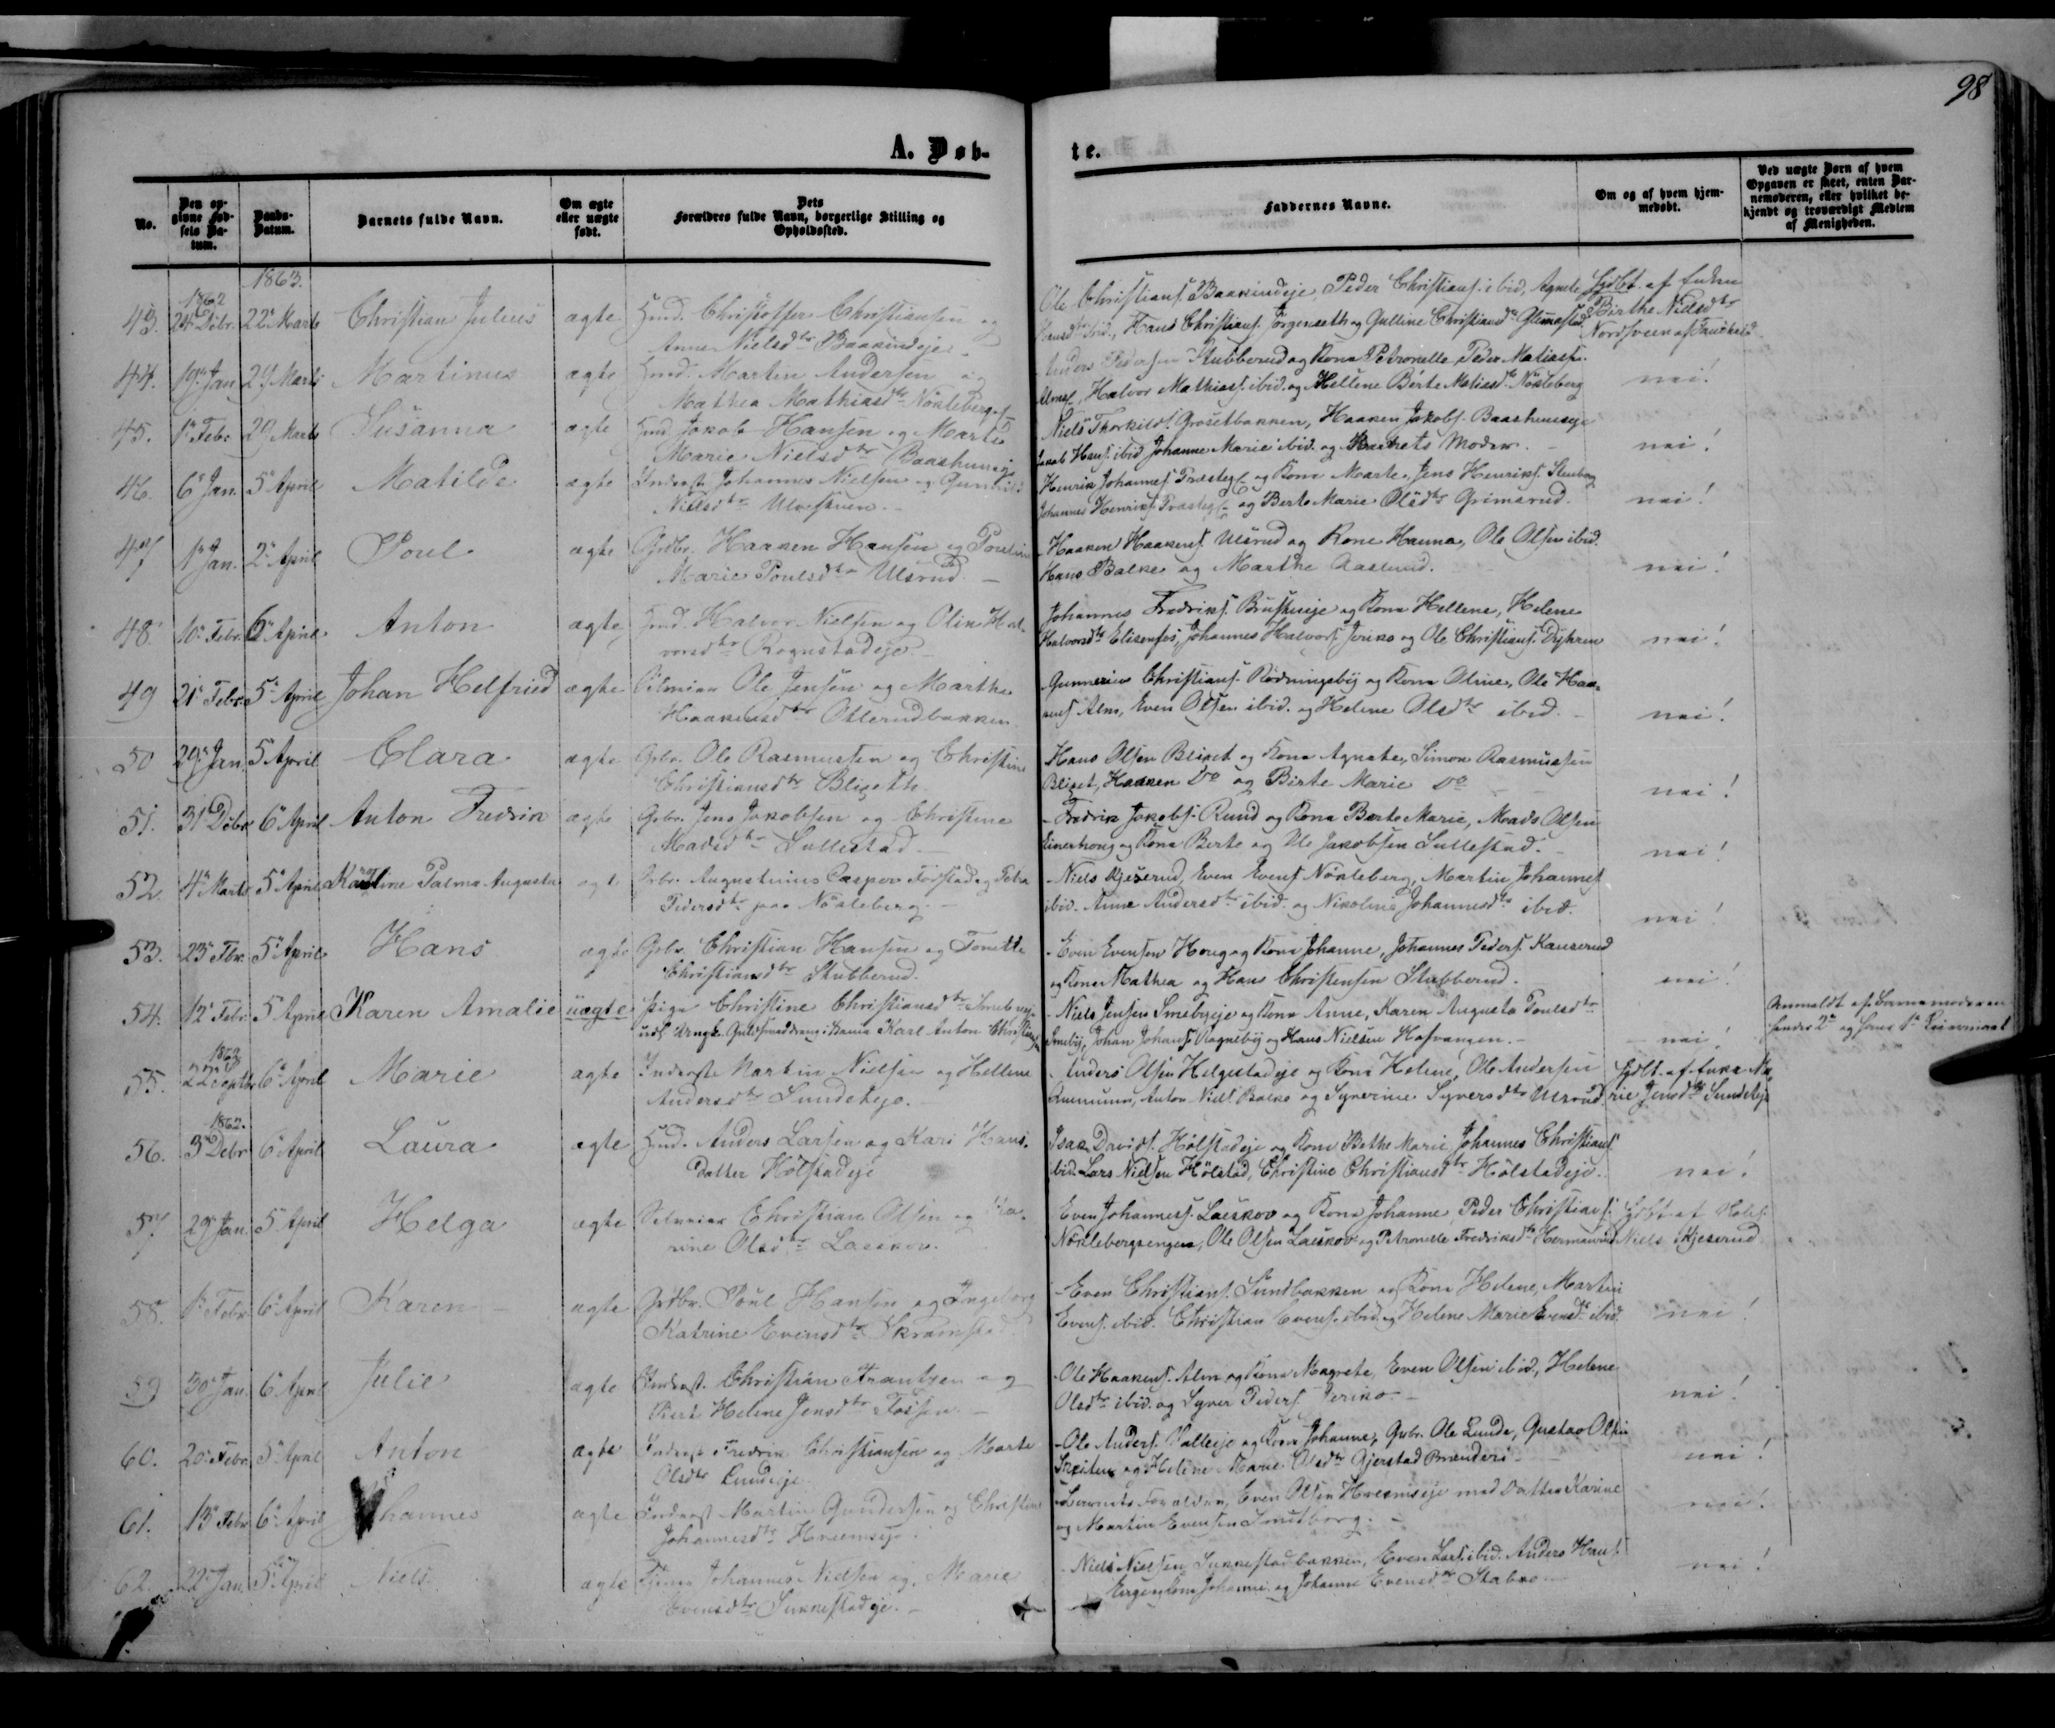 98
A. Døb-
te.
No.
Den op-
givne Fød-
sels Da-
tum.
Daabs-
Datum.
Barnets fulde Navn.
Om ægte
eller uægte
født.
Dets
Forældres fulde Navn, borgerlige Stilling og
Opholdssted.
Faddernes Navne.
Om og af hvem hjem-
medøbt.
Ved uægte Børn af hvem
Opgaven er skeet, enten Bar-
nemoderen, eller hvilket be-
kjendt og troværdigt Medlem
af Menigheden.
1863.
1862
43. 24 Debr. 22 Marts Christian Julius ægte Hmd. Christoffer Christiansen og
Anne Nielsdtr Baashuseje
Ole Christians. Baashuseje, Peder Christians. ibid, Agnete
Hansdtr ibid., Hans Christians. Jörgenseth og Gulline Christiansdtr Glemestad
Hjdbt. af Enken
Birthe Nielsdtr
Nordsveen af
44. 19 Jan 29 Marts Martinus ægte Hmd. Martin Andersen og
Mathea Mathiasdtr Nökleberg
Anders Pedersen Stubberud og Kone Petronelle, Peder Matiass.
Alms, Halvor Mathiass. ibid. og Hellene Birte Matiasdtr Nökleberg
nei!
45. 1 Febr 29 Marts Susanna ægte Hmd Jakob Hansen og Marte
Marie Nielsdtr Baashuseje
Niels Thorkilds. Grosetbakken, Haaken Jakobs. Baashuseje
Jakob Hans. ibid Johanne Marie ibid. og Barnets Moder.
nei!
46. 6 Jan. 5 April Matilde ægte Inderst Johannes Nielsen og Gunhild
Nielsdtr Ulvestuen.
Henrik Johannes Præsteg. og Kone Marte, Jens Henriks. Stenberg
Johannes Henriks. Præsteg. og Berte Marie Olsdtr Grimsrud.
nei!
47 1 Jan. 2 April Poul ægte Grdbr. Haaken Hansen og Pouline
Marie Poulsdtr Ulsrud.
Haaken Haakens. Ulsrud og Kone Hanna, Ole Olsen ibid.
Hans Balke og Marthe Aaslund.
nei!
48. 10 Febr. 6 April Anton ægte Hmd. Halvor Nielsen og Oline Hal-
vorsdtr Rognstadeje.
Johannes Fredriks. Brusthueje og Kone Hellene, Helene
Halvorsdtr Elisenfos, Johannes Halvors. Jeriko og Ole Christians. Dyhren
nei!
49 21 Febr. 5 April Johan Helfried ægte Ole Jensen og Marthe
Haakensdtr Ollerudbakken
Gunnerius Christians. Rödningsby og Kone Oline, Ole Haa-
kens. Alm, Even Olsen ibid. og Helene Olsdtr ibid.
nei!
50 29 Jan. 5 April Clara ægte Grbr. Ole Rasmussen og Christine
Christiansdtr Blixeth.
Hans Olsen Blixet og Kone Agnete, Simon Rasmussen
Blixet, Haaken Do og Birte Marie Do
nei!
51. 31 Debr 6 April Anton Fredrik ægte Grbr. Jens Jakobsen og Christine
Madsdtr Sullestad
Fredrik Jakobs. Rund og Kone Berte Marie, Mads Olsen
Einerhoug og Kone Berte og Ole Jakobsen Sullestad.
nei!
52. 4 Marts 5 April Karoline Palma Augusta ægte Grbr. Augustinius Caspar Forstad og Petra
Pedersdtr paa Nökleberg.
Niels Kjeserud, Even Evens Nökleberg, Martin Johannes
ibid. Anne Andersdtr ibid. og Nikoline Johannesdtr ibid.
nei!
53. 23 Fbr. 5 April Hans ægte Grbr. Christian Hansen og Tonette
Christiansdtr Stubberud.
Even Evensen Houg og Kone Johanne, Johannes Peders. Kauserud
og Kone Mathea og Hans Christensen Stubberud.
nei!
54. 12 Febr. 5 April Karen Amalie uægte Pige Christine Christiansdtr Smebyeje
Karl Anton Christiansen
Niels Jensen Smebyeje og Kone Anne, Karen Augusta Poulsdtr
Smeby, Johan Johans. Rognebÿ og Hans Nielsen Hofvangen.
nei!
Anmeldt af Barnemoderen
hendes 2det og hans 1ste
1862
55. 22 Septbr 6 April Marie ægte Inderste Martin Nielsen og Hellene
Andersdtr Sundeheje.
Anders Olsen Helgestadeje og Kone Helene, Ole Andersen
Anton Niels. Balke og Syverine Syversdtr Ulsrud
Hjdbt. af Enke Ma-
rie Jensdtr Sundeheje
1862.
56. 3 Debr 6 April Laura ægte Hmd. Anders Larsen og Kari Hans-
datter Hölstadeje
Isak Davids. Hölstadeje og Kone Birthe Marie Johannes Christians.
ibid. Lars Nielsen Hölstad, Christine Christiansdtr Hölstadeje.
nei!
57. 29 Jan. 5 April Helga ægte Selveier Christian Olsen og Ka-
rine Olsdtr Laeskov.
Even Johanness. Laeskov og Kone Johanne, Peder Christians.
Nöklebergsengen, Ole Olsen Laeskov og Petronelle Fredriksdtr Hermanrud
Hjdbt af
Niels Kjeserud
58. 1 Febr 6 April Karen ægte Grdbr. Poul Hansen og Ingeborg
Katrine Evensdtr Skramstad.
Even Christians. Sundbakken og Kone Helene, Martin
Evens. ibid. Christian Evens. ibid. og Helene Marie Evensdtr ibid.
nei!
59 30 Jan. 6 April Julie ægte Inderst. Christian Frantzen og
Birte Helene Jensdtr Fossen.
Ole Haakens. Alm og Kone Magrete, Even Olsen ibid, Helene
Olsdtr ibid. og Syver Peders. Jeriko
nei!
60. 20 Febr. 5 April Anton ægte Inderst Fredrik Christiansen og Marte
Olsdtr Lundeje.
Ole Anders. Valleeje og Kone Johanne, Grbr. Ole Lunde, Gustav Olsen
og Helene Marie Olsdtr Gjerstad
nei!
61. 13 Febr 6 April Johannes ægte Inderst Martin Gundersen og Christine
Johannesdtr Hveemseje.
Barnets Forældre, Even Olsen Hveemseje med Datter Karine
og Martin Evensen Smedborg.
nei!
62. 22 Jan. 5 April Niels ægte Johannes Nielsen og Marie
Evensdtr Sukkestadeje.
Niels Nielsen Sukkestadbakken, Even Lars. ibid. Anders Hans.
og Kone Johanne og Johanne Evensdtr Stabo
nei!